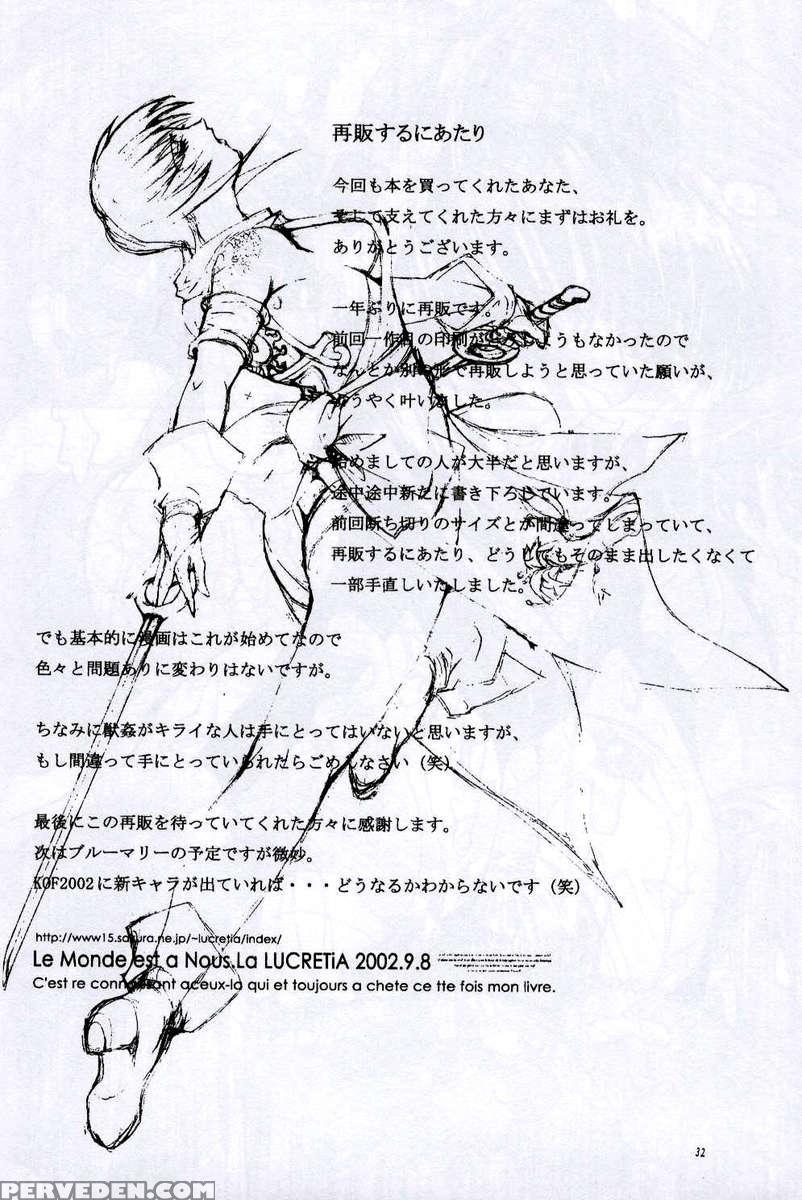 再販するにあたり
今回も本を買ってくれたあなた、
そして支えてくれた方々にまずはお礼を。
ありがとうございます。
一年ぶりに再販です。
前回一作目の印刷がどうしようもなかったので
なんとか別の形で再販しようと思っていた願いが、
ようやく叶いました。
始めましての人が大半だと思いますが、
途中途中新たに書き下ろしています。
前回断ち切りのサイズとか間違ってしまっていて、
再販するにあたり、どうしてもそのまま出したくなくて
一部手直しいたしました。
でも基本的に漫画はこれが始めてなので
色々と問題ありに変わりはないですが。
ちなみに獣姦がキライな人は手にとってはいないと思いますが、
もし間違って手にとっていられたらごめんなさい（笑）
最後にこの再販を待っていてくれた方々に感謝します。
次はブルーマリーの予定ですが微妙。
KOF2002に新キャラが出ていれば・・・どうなるかわからないです（笑）
http://www15.sakura.ne.jp/~lucretia/index/
Le Monde est a Nous.La LUCRETiA 2002.9.8
C'est re connaissant aceux-la qui et toujours a chete ce tte fois mon livre.
32
PERVEDEN.COM